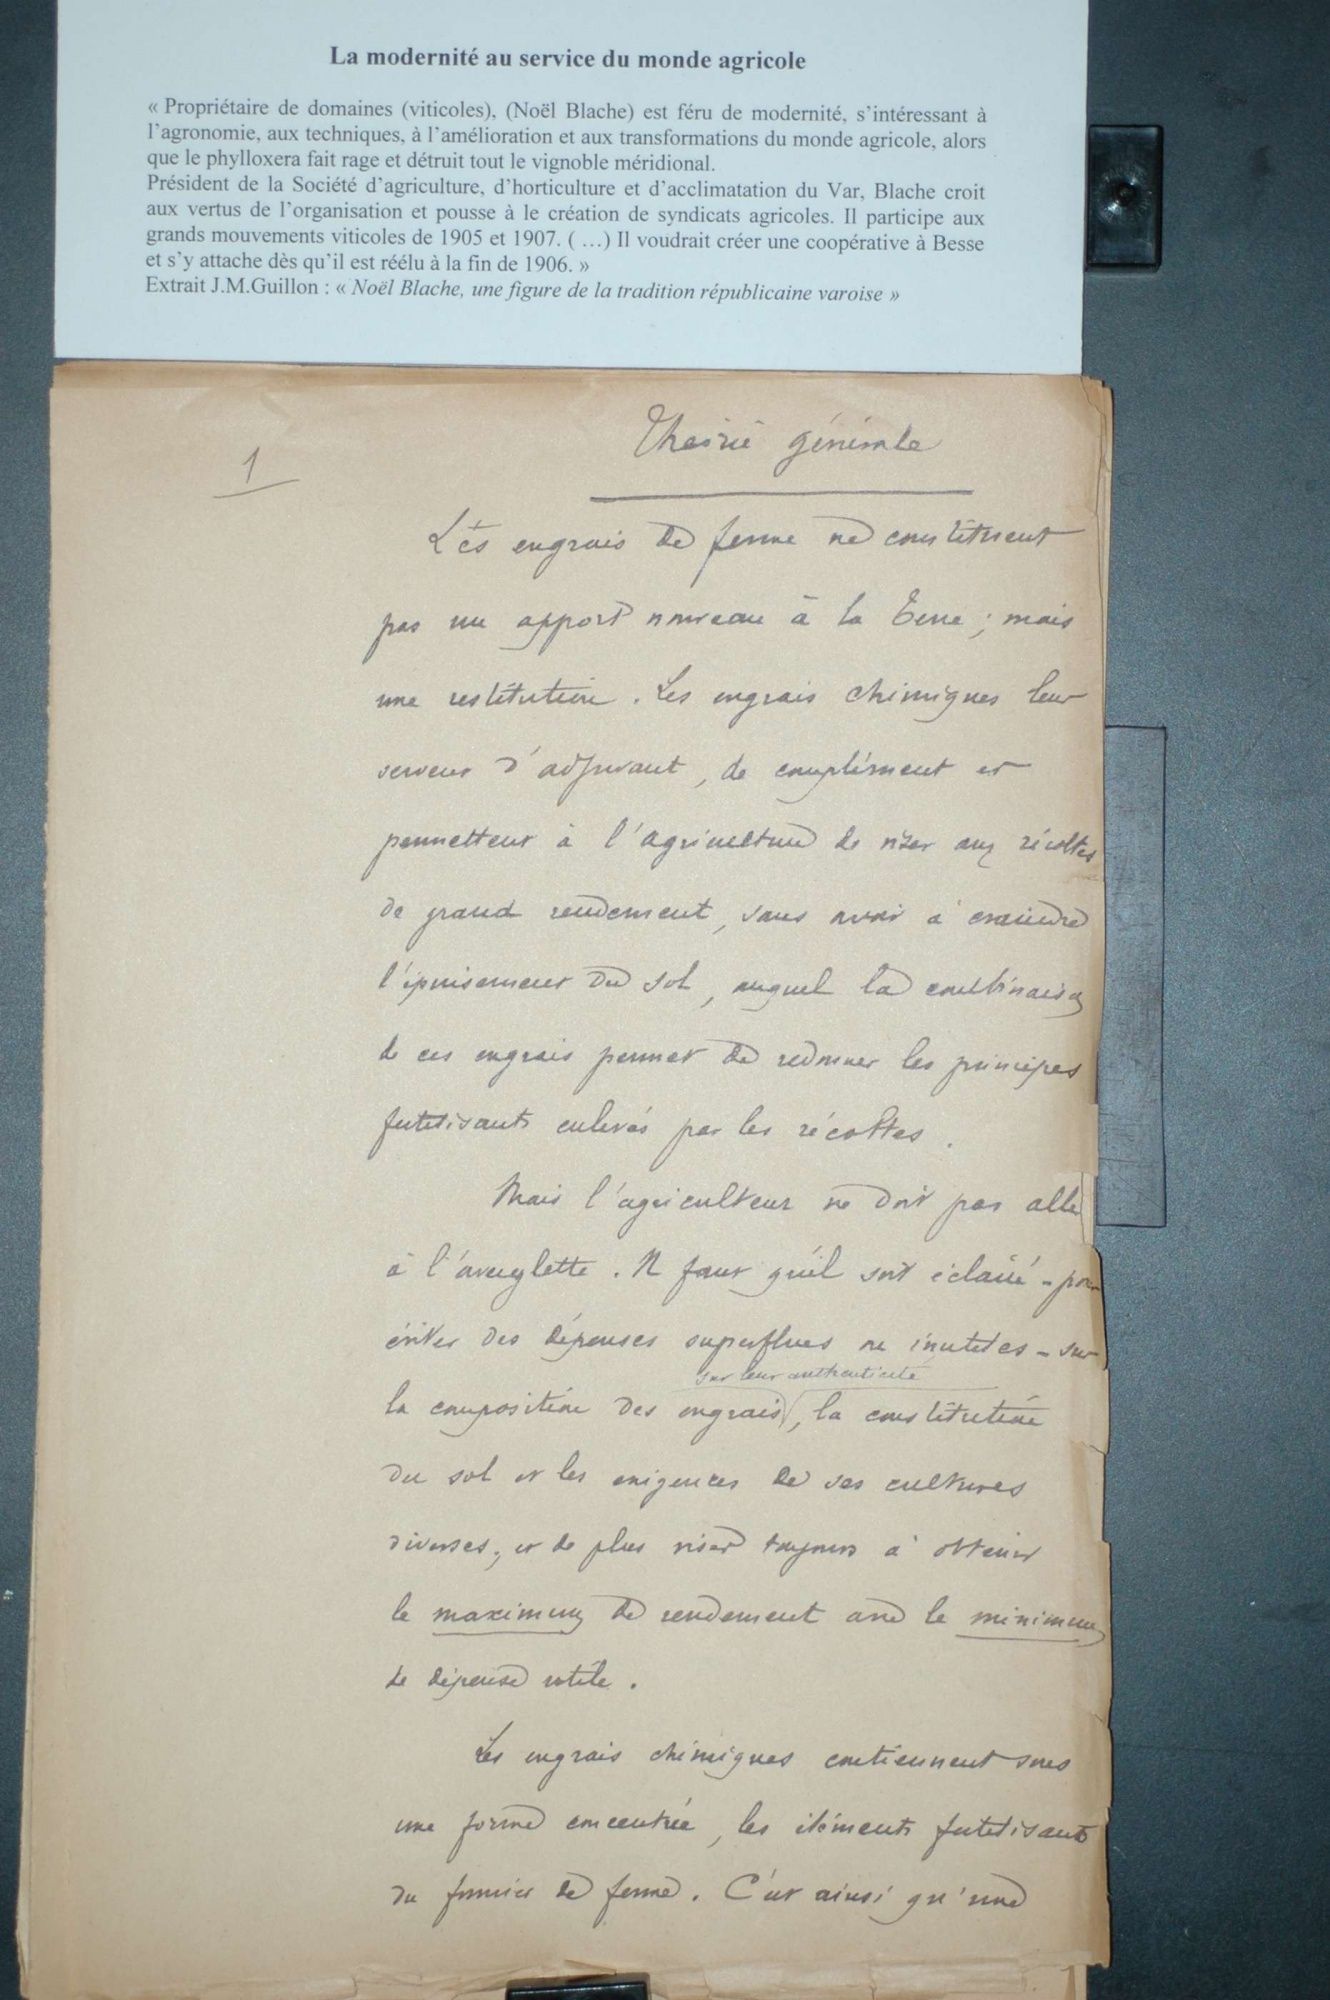 La modernité au service du monde agricole
« Propriétaire de domaines (viticoles), (Noël Blache) est féru de modernité, s’intéressant à
l’agronomie, aux techniques, à l’amélioration et aux transformations du monde agricole, alors
que le phylloxera fait rage et détruit tout le vignoble méridional.
Président de la Société d’agriculture, d’horticulture et d’acclimatation du Var, Blache croit
aux vertus de l’organisation et pousse à le création de syndicats agricoles. Il participe aux
grands mouvements viticoles de 1905 et 1907. ( …) Il voudrait créer une coopérative à Besse
et s’y attache dès qu’il est réélu à la fin de 1906. »
Extrait J.M.Guillon : « Noël Blache, une figure de la tradition républicaine varoise »
1
Théorie générale
Les engrais de ferme ne constituent
pas un apport nouveau à la terre ; mais
une restitution . Les engrais chimiques leur
servent d'adjuvant, de complément et
permettent à l'agriculture de viser aux récoltes
de grand rendement, sans avoir à craindre
l'épuisement du sol, auquel la combinaison
de ces engrais permet de redonner les principes
fertilisants enlevés par les récoltes .
Mais l'agriculteur ne doit pas aller
à l'aveuglette . Il faut qu'il soit éclairé - pour
éviter des dépenses superflues ou inutiles - sur
sur leur authenticité
la composition des engrais, la constitution
du sol et les exigences de ses cultures
diverses, et de plus viser toujours à obtenir
le maximum de rendement avec le minimum
de dépense utile .
Les engrais chimiques contiennent sous
une forme concentrée, les éléments fertilisants
du fumier de ferme. C'est ainsi qu'une